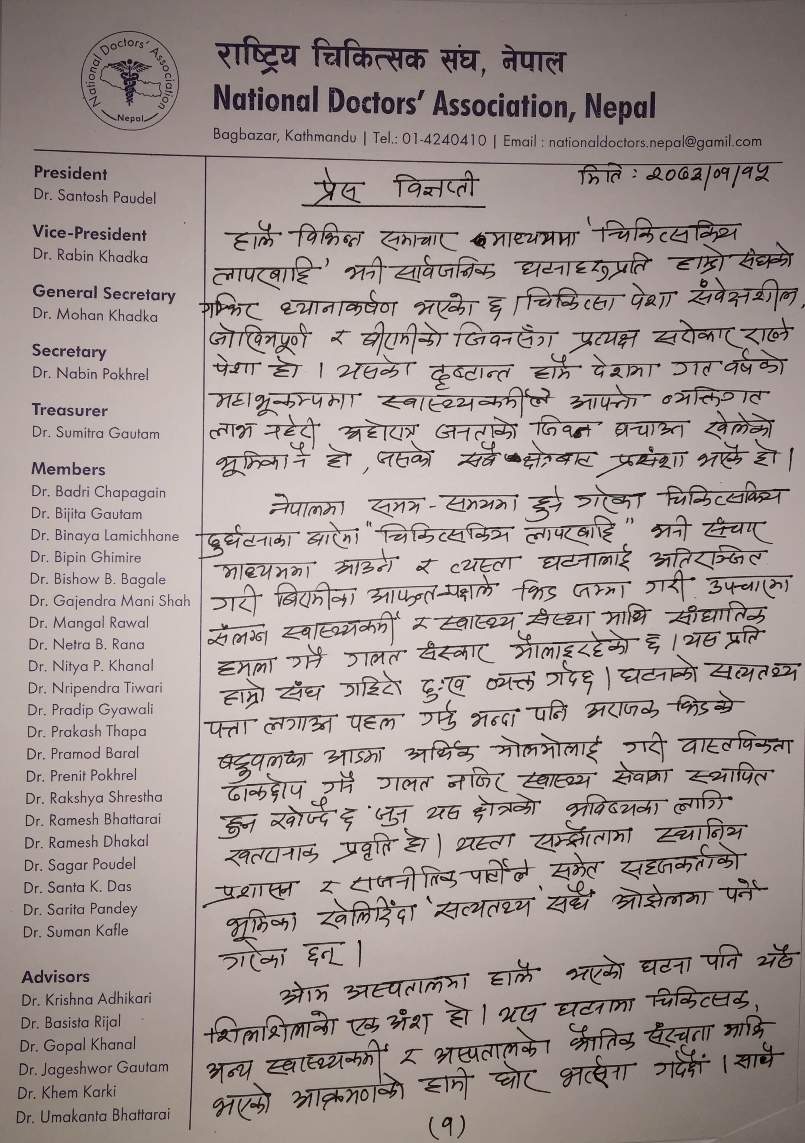 National Doctors' Association
Nepal
राष्ट्रिय चिकित्सक संघ, नेपाल
National Doctors' Association, Nepal
Bagbazar, Kathmandu | Tel.: 01-4240410 | Email : nationaldoctors.nepal@gamil.com
President
Dr. Santosh Paudel
Vice-President
Dr. Rabin Khadka
General Secretary
Dr. Mohan Khadka
Secretary
Dr. Nabin Pokhrel
Treasurer
Dr. Sumitra Gautam
Members
Dr. Badri Chapagain
Dr. Bijita Gautam
Dr. Binaya Lamichhane
Dr. Bipin Ghimire
Dr. Bishow B. Bagale
Dr. Gajendra Mani Shah
Dr. Mangal Rawal
Dr. Netra B. Rana
Dr. Nitya P. Khanal
Dr. Nripendra Tiwari
Dr. Pradip Gyawali
Dr. Prakash Thapa
Dr. Pramod Baral
Dr. Prenit Pokhrel
Dr. Rakshya Shrestha
Dr. Ramesh Bhattarai
Dr. Ramesh Dhakal
Dr. Sagar Poudel
Dr. Santa K. Das
Dr. Sarita Pandey
Dr. Suman Kafle
Advisors
Dr. Krishna Adhikari
Dr. Basista Rijal
Dr. Gopal Khanal
Dr. Jageshwor Gautam
Dr. Khem Karki
Dr. Umakanta Bhattarai
मिति : २०७३/०१/१५
प्रेस विज्ञप्ती
हालै विभिन्न समाचार माध्यममा 'चिकित्सकिय
लापरबाहि' भनी सार्वजनिक घटनाहरुप्रति हाम्रो संघको
गम्भिर ध्यानाकर्षण भएको छ । चिकित्सा पेशा संवेदनशील,
जोखिमपूर्ण र बीरामीको जिवनसँग प्रत्यक्ष सरोकार राख्ने
पेशा हो । यसको दृष्टान्त हालै देशमा गत वर्षको
महाभूकम्पमा स्वास्थ्यकर्मीले आफ्नो व्यक्तिगत
लाभ नहेरी अहोरात्र जनताको जिवन बचाउन खेलेको
भूमिका नै हो, जसको सबै क्षेत्रबाट प्रसंशा भएकै हो ।
नेपालमा समय-समयमा हुने गरेका चिकित्सकिय
दुर्घटनाका बारेमा "चिकित्सकिय लापरबाहि" भनी संचार
माध्यममा आउने र त्यस्ता घटनालाई अतिरञ्जित
गरी बिरामीका आफन्त-पक्षले भिड जम्मा गरी उपचारमा
संलग्न स्वास्थ्यकर्मी र स्वास्थ्य संस्था माथि सांघातिक
हमला गर्ने गलत संस्कार मौलाइरहेको छ । यस प्रति
हाम्रो संघ गहिरो दुःख व्यक्त गर्दछ । घटनाको सत्यतथ्य
पत्ता लगाउन पहल गर्नु भन्दा पनि अराजक भिडको
बाहुबलका आडमा आर्थिक मोलमोलाई गरी वास्तविकता
ढाकछोप गर्ने गलत नजिर स्वास्थ्य सेवामा स्थापित
हुन खोज्दै छ जुन यस क्षेत्रको भविष्यका लागि
खतरानाक प्रवृति हो । यस्ता सम्झौतामा स्थानिय
प्रशासन र राजनीतिक पार्टीले समेत सहजकर्ताको
भूमिका खेलिदिँदा 'सत्यतथ्य' सधैँ ओझेलमा पर्ने
गरेका छन् ।
ओम अस्पतालमा हालै भएको घटना पनि यसै
शिलशिलाको एक अंश हो । यस घटनामा चिकित्सक,
अन्य स्वास्थ्यकर्मी र अस्पतालको भौतिक संरचना माथि
भएको आक्रमणको हामी घोर भर्त्सना गर्दछौं । साथै
(१)